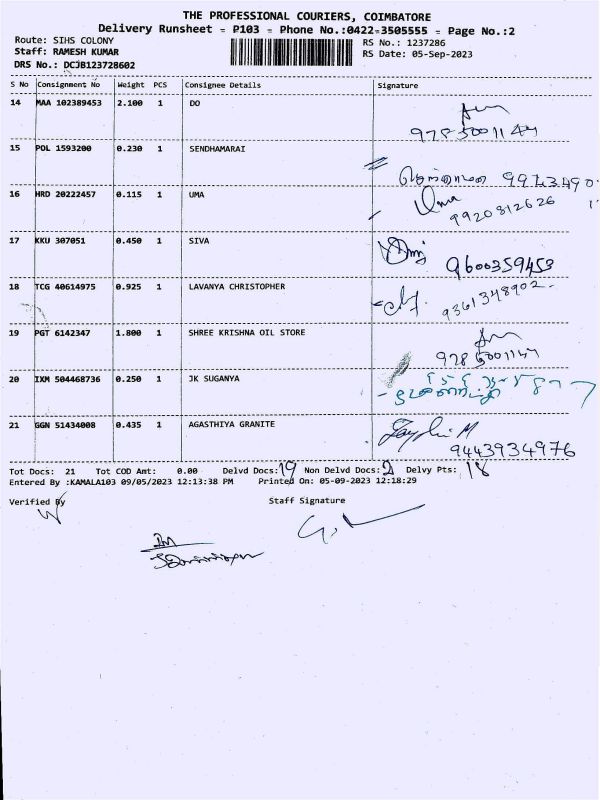 THE PROFESSIONAL COURIERS, COIMBATORE
Delivery Runsheet = P103 = Phone No.:0422-3505555 = Page No.:2
Route: SIHS COLONY RS No.: 1237286
Staff: RAMESH KUMAR RS Date: 05-Sep-2023
DRS No.: DCJB123728602
S No Consignment No Weight PCS Consignee Details Signature
14 MAA 102389453 2.100 1 DO
9785001147
15 POL 1593200 0.230 1 SENDHAMARAI
16 HRD 20222457 0.115 1 UMA Uma
9920812626
17 KKU 307051 0.450 1 SIVA
9600359453
18 TCG 40614975 0.925 1 LAVANYA CHRISTOPHER
9361348902
19 PGT 6142347 1.800 1 SHREE KRISHNA OIL STORE
9785001147
20 IXM 504468736 0.250 1 JK SUGANYA
21 GGN 51434008 0.435 1 AGASTHIYA GRANITE
9443934976
Tot Docs: 21 Tot COD Amt: 0.00 Delvd Docs: 19 Non Delvd Docs: 2 Delvy Pts: 18
Entered By :KAMALA103 09/05/2023 12:13:38 PM Printed On: 05-09-2023 12:18:29
Verified By Staff Signature